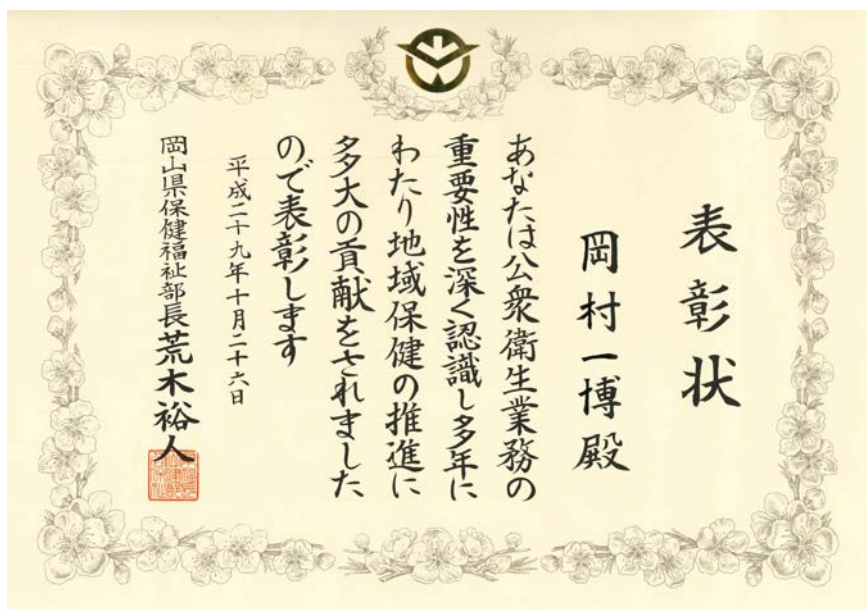 表彰状
岡村一博殿
あなたは公衆衛生業務の
重要性を深く認識し多年に
わたり地域保健の推進に
多大の貢献をされました
ので表彰します
平成二十九年十月二十六日
岡山県保健福祉部長荒木裕人